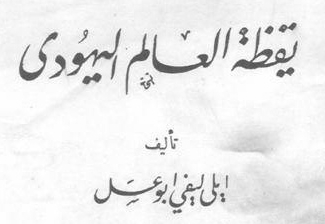 يقظة العالم اليهودى
تأليف
ايلى ليفي ابو عسل